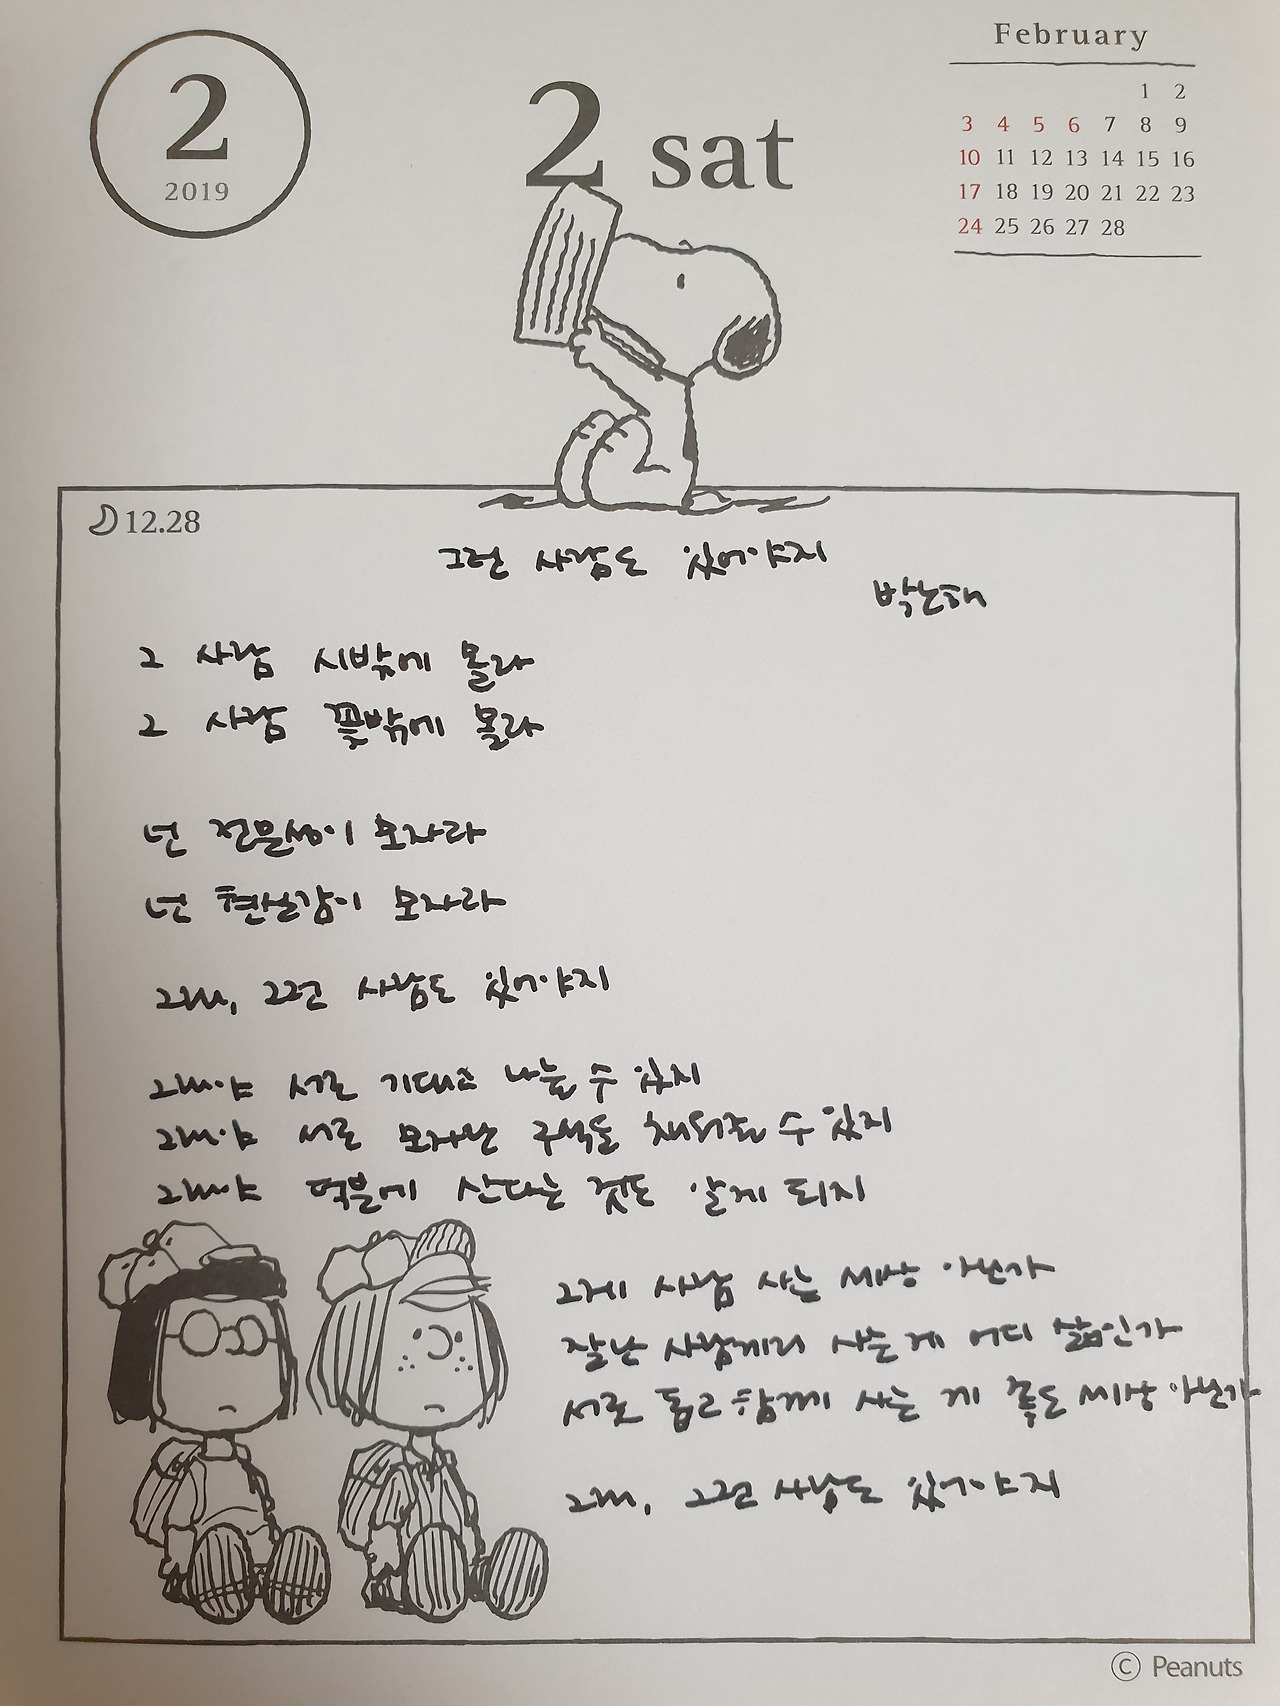 2
2019
2 sat
February
1 2
3 4 5 6 7 8 9
10 11 12 13 14 15 16
17 18 19 20 21 22 23
24 25 26 27 28
12.28
그런 사람도 있어야지
박노해
그 사람 시밖에 몰라
그 사람 꽃밖에 몰라
넌 전문성이 모자라
넌 현실감이 모자라
그래, 그런 사람도 있어야지
그래야 서로 기대고 나눌 수 있지
그래야 서로 모자란 구석도 채워줄 수 있지
그래야 덕분에 산다는 것도 알게 되지
그게 사람 사는 세상 아닌가
잘난 사람끼리 사는 게 어디 삶인가
서로 돕고 함께 사는 게 좋은 세상 아닌가
그래, 그런 사람도 있어야지
© Peanuts